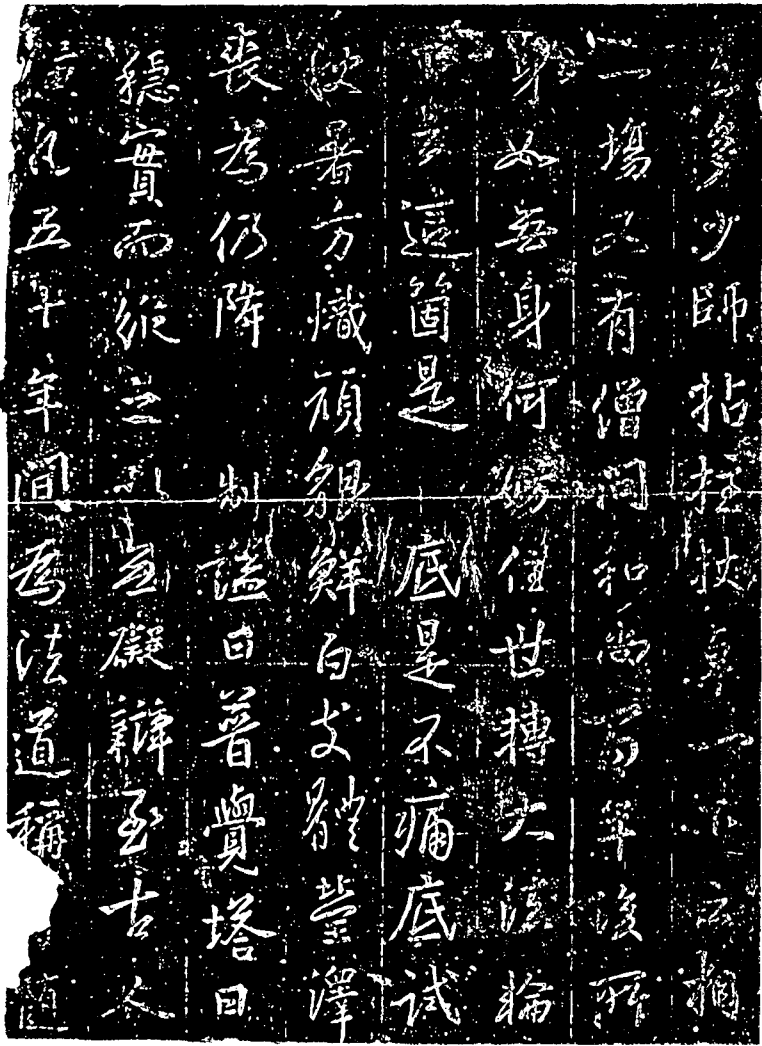 多少師拈拄杖卓一下云捆
一場又有僧問和尚百年後所
身如無身何妨住世轉大法輪
這箇是底是不痛底試
故暑方熾頑貌鮮白支體瑩澤
喪為仍降制謚曰普覺塔曰
穩實而縱無礙辯至古人
五十年間為法道稱隨